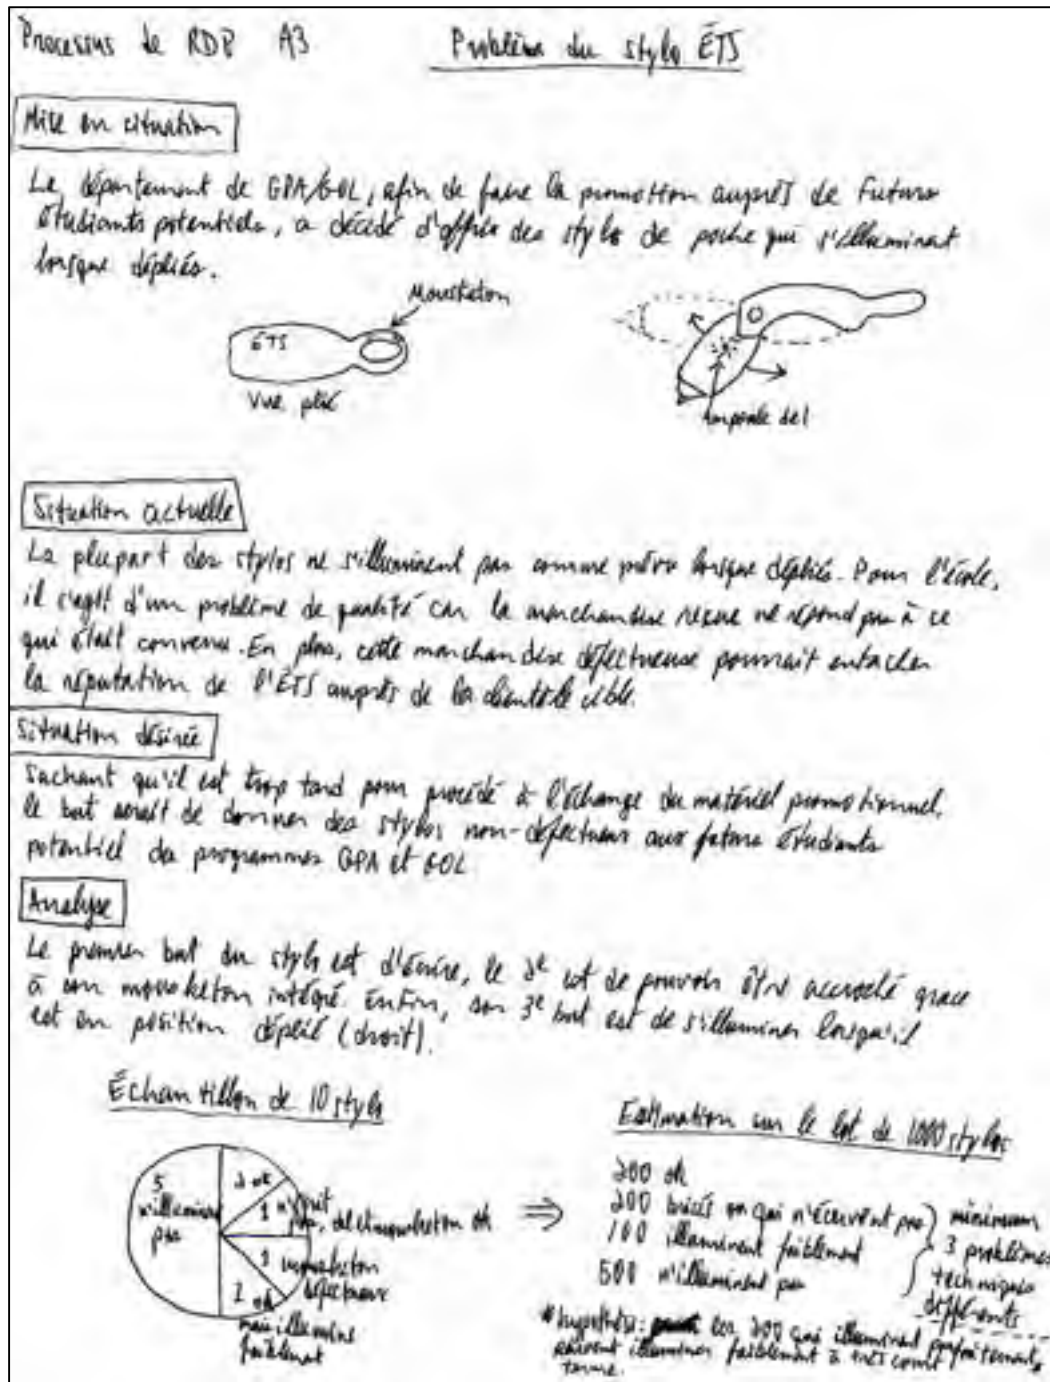 Processus de RDP A3
Problème du stylo ÉTS
Mise en situation
Le département de GPA/GOL, afin de faire la promotion auprès de futurs
étudiants potentiels, a décidé d'offrir des stylo de poche qui s'illuminent
lorsque dépliés.
Mousketon
ÉTS
Vue plié
Ampoule del
Situation actuelle
La plupart des stylos ne s'illuminent pas comme prévu lorsque dépliés. Pour l'école,
il s'agit d'un problème de qualité car la marchandise reçue ne répond pas à ce
qui était convenu. En plus, cette marchandise défectueuse pourrait entacher
la réputation de l'ÉTS auprès de la clientèle cible.
Situation désirée
Sachant qu'il est trop tard pour procédé à l'échange du matériel promotionnel,
le but serait de donner des stylos non-défectueux aux futurs étudiants
potentiel des programmes GPA et GOL
Analyse
Le premier but du stylo est d'écrire, le 2e est de pouvoir être accroché grace
à son mousketon intégré. Enfin, son 3e but est de s'illuminer lorsqu'il
est en position déplié (droit).
Échantillon de 10 stylo
5
n'illuminent
pas
2 ok
1 n'écrit
pas, del et mousketon ok
1 mousketon
défectueux
2 ok
mais illumine
faiblement
⇒
Estimation sur le lot de 1000 stylos
200 ok
200 brisés ou qui n'écrivent pas
100 illuminent faiblement
500 n'illuminent pas
minimum
3 problèmes
techniques
différents
* hypothèse: les 200 qui illuminent parfaitement
peuvent illuminer faiblement à très court
terme.